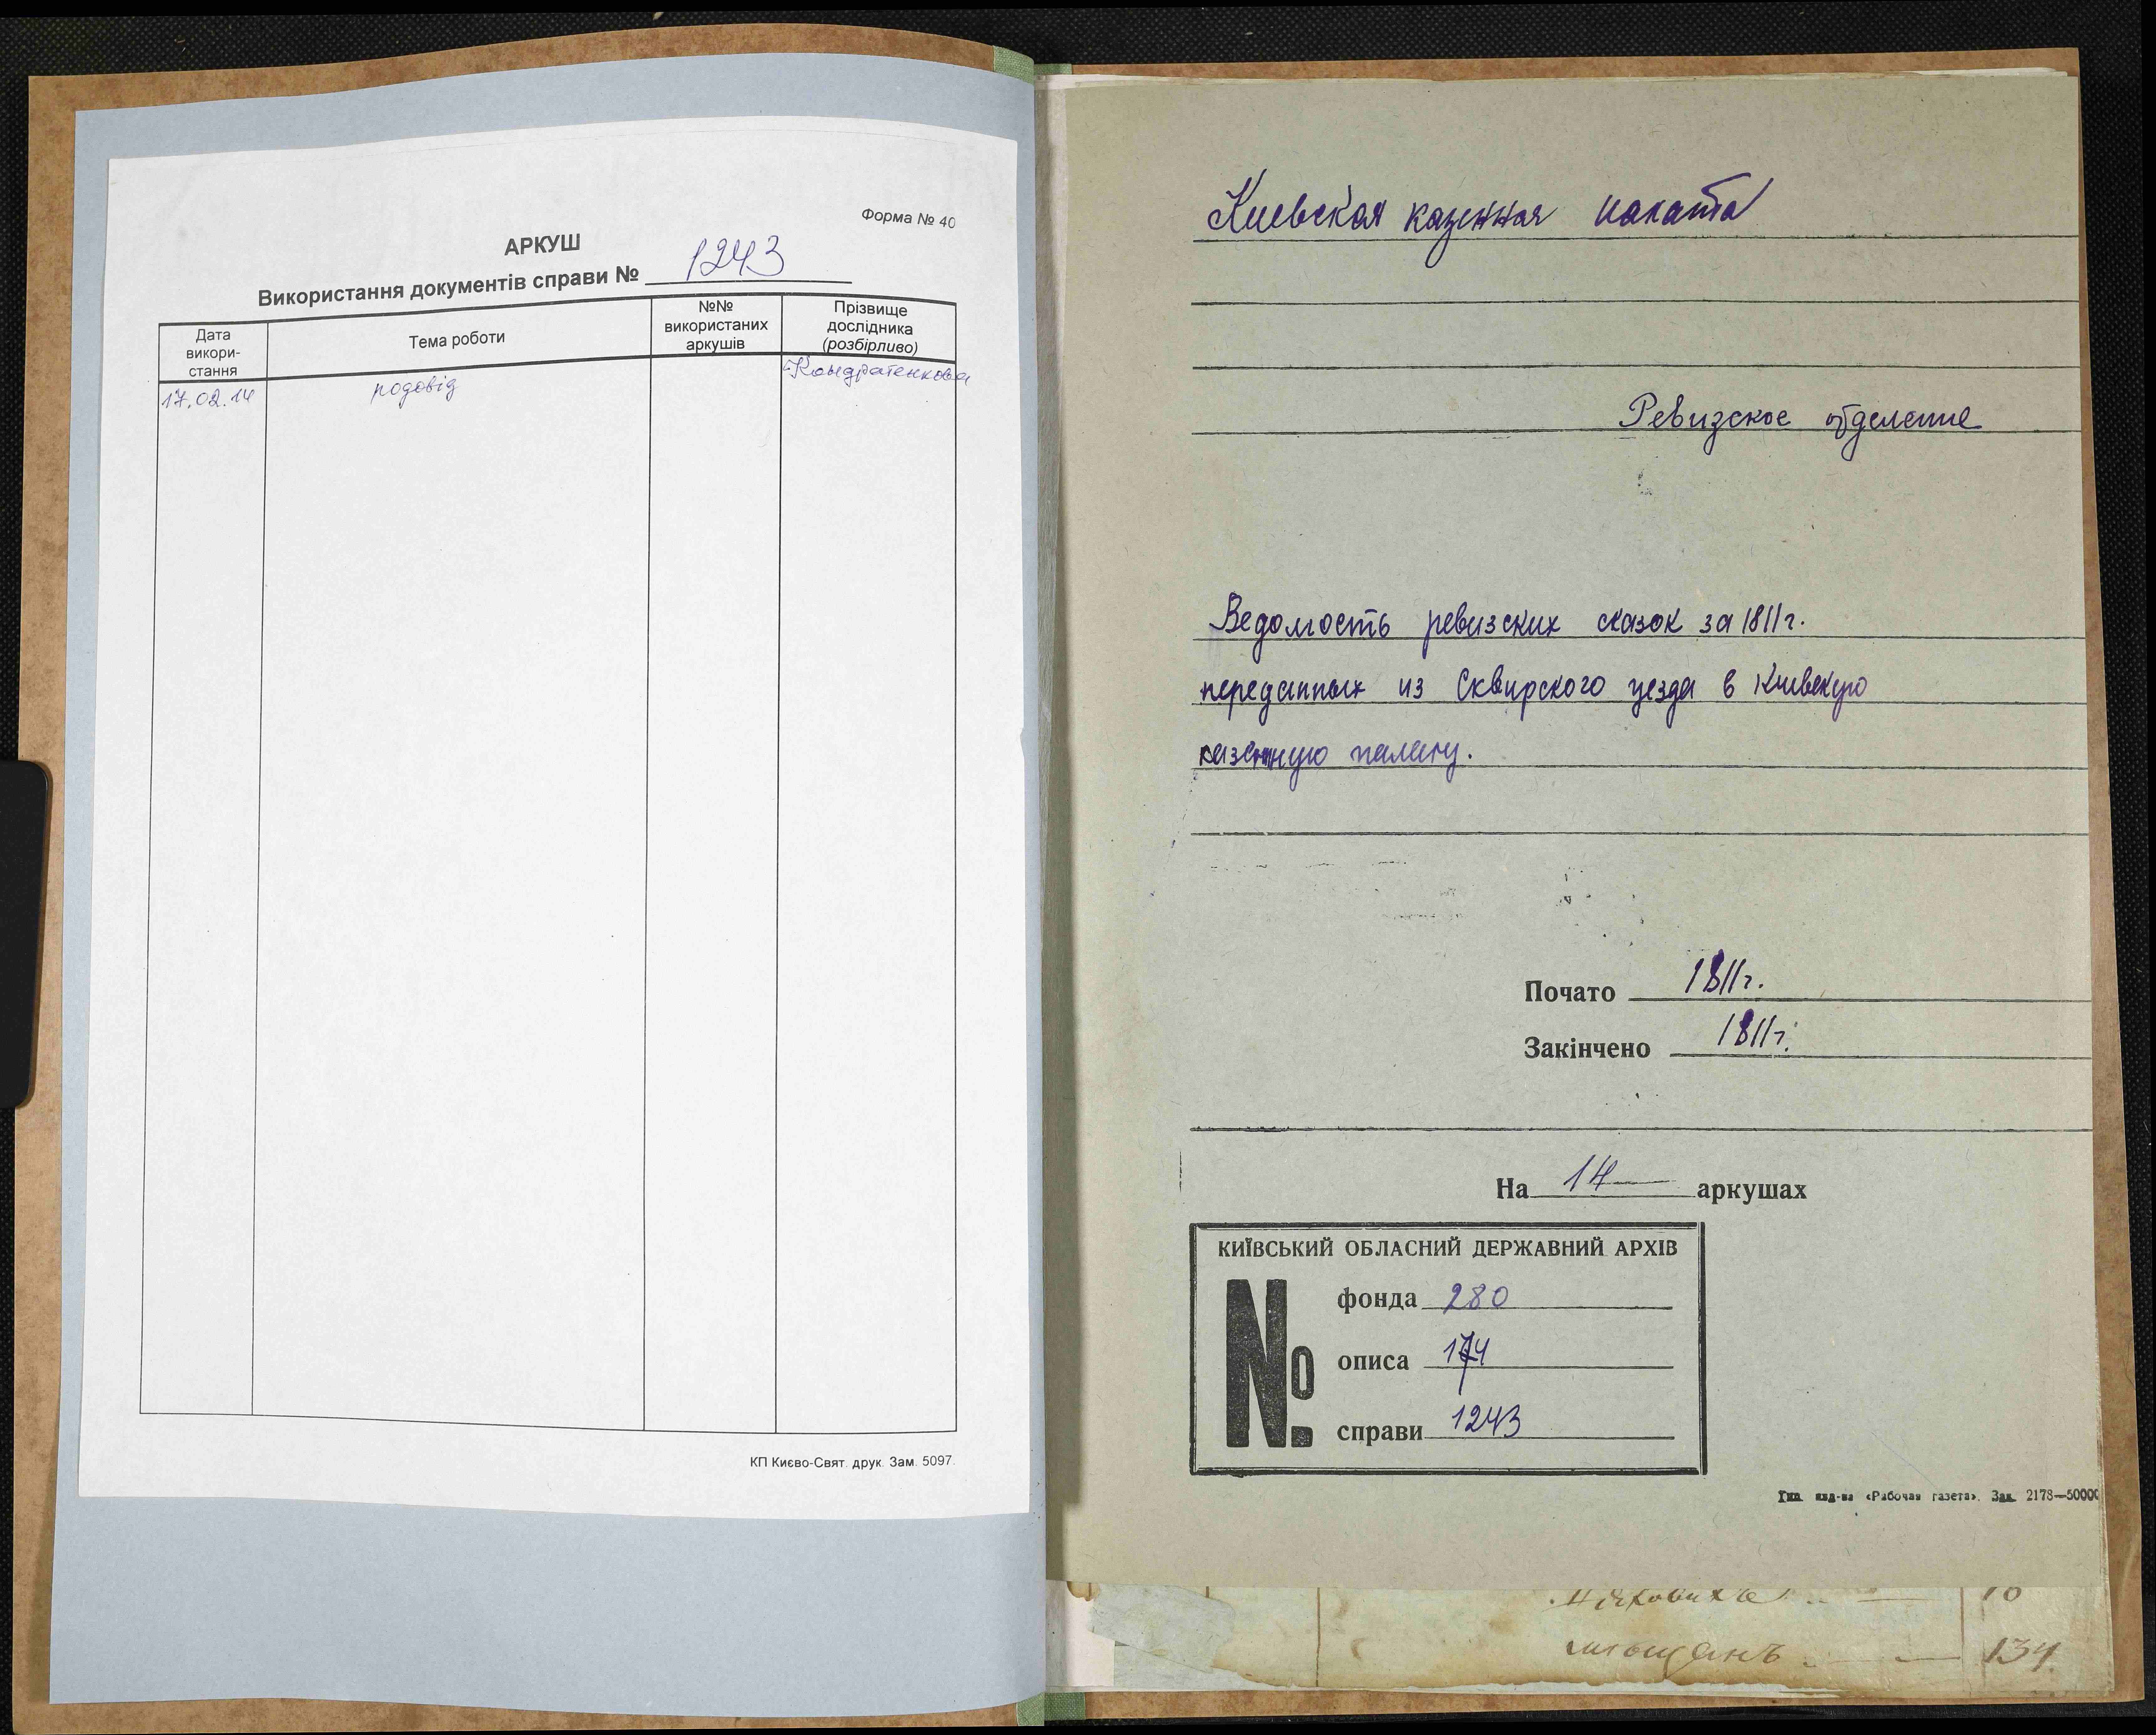 Форма № 40
АРКУШ
Використання документів справи № 1243
Дата викори-стання
Тема роботи
№№ використаних аркушів
Прізвище дослідника (розбірливо)
17.02.14 родовід Кондратенкова
КП Києво-Свят. друк. Зам. 5097.
Киевская казенная палата
Ревизское отделение
Ведомость ревизских сказок за 1811 г.
переданных из Сквирского уезда в Киевскую
казенную палату.
Почато 1811 г.
Закінчено 1811 г.
На 14 аркушах
КИЇВСЬКИЙ ОБЛАСНИЙ ДЕРЖАВНИЙ АРХІВ
№
фонда 280
описа 174
справи 1243
Тип. изд-ва «Рабочая газета». Зак. 2178—50000
мѣщанъ 134